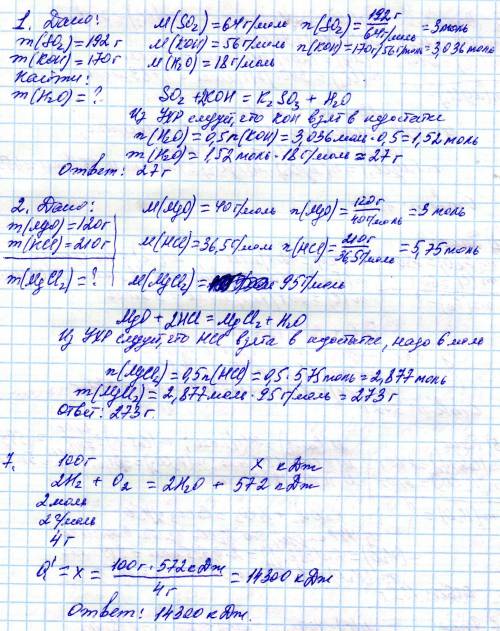 1. Дано: M(SO₂)=64г/моль n(SO₂)=192г/64г/моль=3моль
m(SO₂)=192г M(KOH)=56г/моль n(KOH)=170г/56г/моль=3,036моль
m(KOH)=170г M(H₂O)=18г/моль
Найти:
m(H₂O)=? SO₂+2KOH=K₂SO₃+H₂O
Из УХР следует, что KOH взят в недостатке
n(H₂O)=0,5n(KOH)=3,036моль·0,5=1,52моль
m(H₂O)=1,52моль·18г/моль=27г
Ответ: 27г
2. Дано: M(MgO)=40г/моль n(MgO)=120г/40г/моль=3моль
m(MgO)=120г
m(HCl)=210г M(HCl)=36,5г/моль n(HCl)=210г/36,5г/моль=5,75моль
m(MgCl₂)=? M(MgCl₂)=95г/моль
MgO+2HCl=MgCl₂+H₂O
Из УХР следует, что HCl взята в недостатке, надо 6 моль
n(MgCl₂)=0,5n(HCl)=0,5·5,75моль=2,877моль
m(MgCl₂)=2,877моль·95г/моль=273г
Ответ: 273г
7. 100г x кДж
2H₂+O₂=2H₂O+572кДж
2моль
2г/моль
4г
Q=x=100г·572кДж/4г=14300кДж
Ответ: 14300кДж.